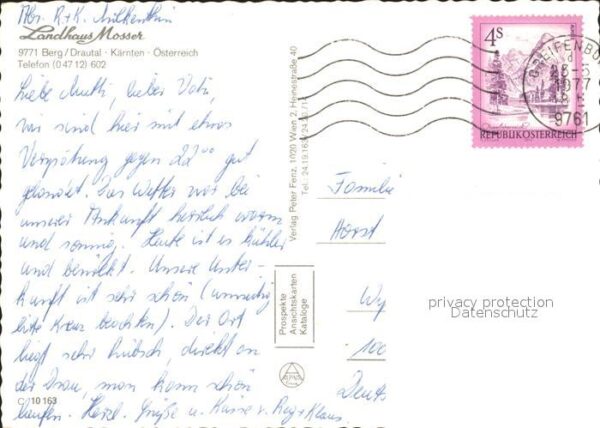 Abs. R + K.
Landhaus Mosser
9771 Berg/Drautal · Kärnten · Österreich
Telefon (0 47 12) 602
Liebe Mutti, lieber Vati,
wir sind hier mit etwas
Verspätung gegen 22⁰⁰ gut
gelandet. Das Wetter war bei
unserer Ankunft herrlich warm
und sonnig. Heute ist es kühler
und bewölkt. Unsere Unter-
kunft ist sehr schön (umseitig
bitte Kreuz beachten). Der Ort
liegt sehr hübsch, direkt an
der Drau, man kann schön
laufen. Herzl. Grüße u. Küsse v. Reg + Klaus.
C/10 163
Verlag Peter Fenz, 1020 Wien 2, Heinestraße 40
Prospekte
Ansichtskarten
Kataloge
4S
REPUBLIK ÖSTERREICH
GREIFENBU
9761
Familie
Horst
Wy
100
Deuts
privacy protection
Datenschutz